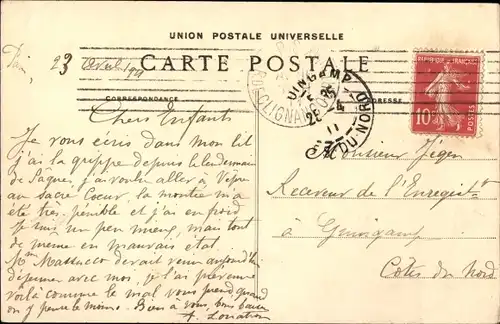 UNION POSTALE UNIVERSELLE
CARTE POSTALE
CORRESPONDANCE
ADRESSE
REPUBLIQUE FRANÇAISE
10
POSTES
GUINGAMP
5 35
26 4
11
DU-NORD
CLIGNANCOURT
23 Avril
Chers Enfants
Je vous écris dans mon lit
j'ai la grippe depuis le lendemain
de Pâques, j'ai voulu aller à Vêpre
au sacré Coeur, la montée m'a
été pénible et j'ai eu froid
Je suis un peu mieux, mais tout
de même en mauvais état.
Mme Massucco devait venir aujourd'hui
déjeuner avec moi, je l'ai prévenue
voilà comme le mal vous prend quand
on y pense le moins. Bien à vous, bons baisers
Monsieur Jégou
Receveur de l'Enregistt
à Guingamp
Côtes du Nord